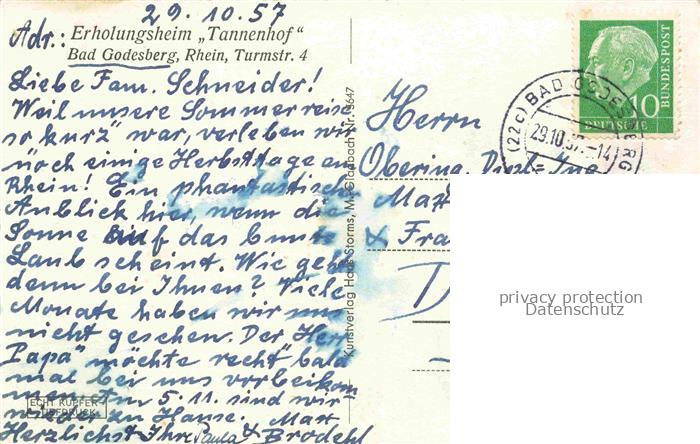 29.10.57
Adr.: Erholungsheim „Tannenhof“
Bad Godesberg, Rhein, Turmstr. 4
Liebe Fam. Schneider!
Weil unsere Sommerreise
so kurz" war, verleben wir
noch einige Herbsttage am
Rhein! Ein phantastischer
Anblick hier, wenn die
Sonne auf das bunte
Laub scheint. Wie geht
denn bei Ihnen? Viele
Monate haben wir uns
nicht gesehen. Der Herr
Papa" möchte recht bald
mal bei uns vorbeikom
men. Am 5.11. sind wir
wieder zu Hause. Max
Herzlichst Ihre Paula & Brödehl
ECHT KUPFER
TIEFDRUCK
Kunstverlag Hans Storms, M.-Gladbach Nr.
Herrn
Obering. Dipl. Ing
Max
& Fra
D
10
DEUTSCHE
BUNDESPOST
(22c) BAD GODESBERG
29.10.57.-14
privacy protection
Datenschutz